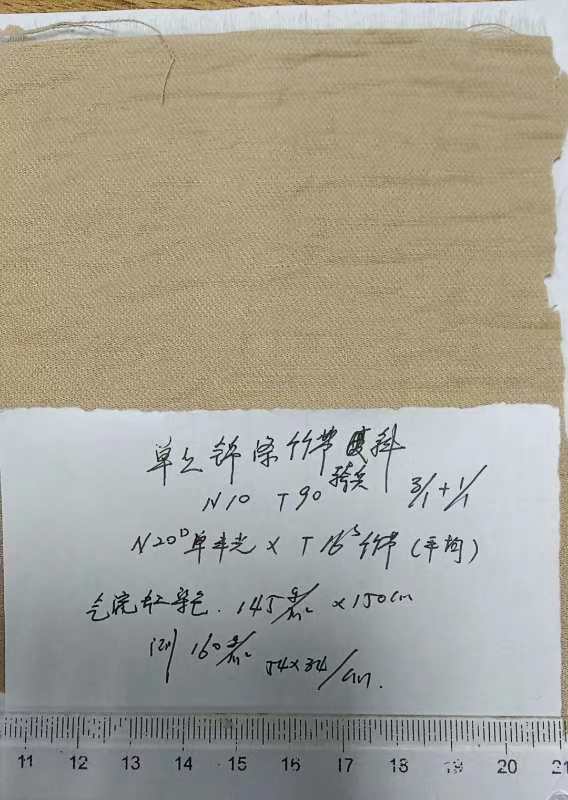 单么锦涤竹节 斜
N10 T90 骑兵 3/1+1/1
N20D单半光 × T16S竹节(平均)
气流缸染色. 145g/m² ×150cm
测 160g/m² 54×34/cm.
11 12 13 14 15 16 17 18 19 20 21